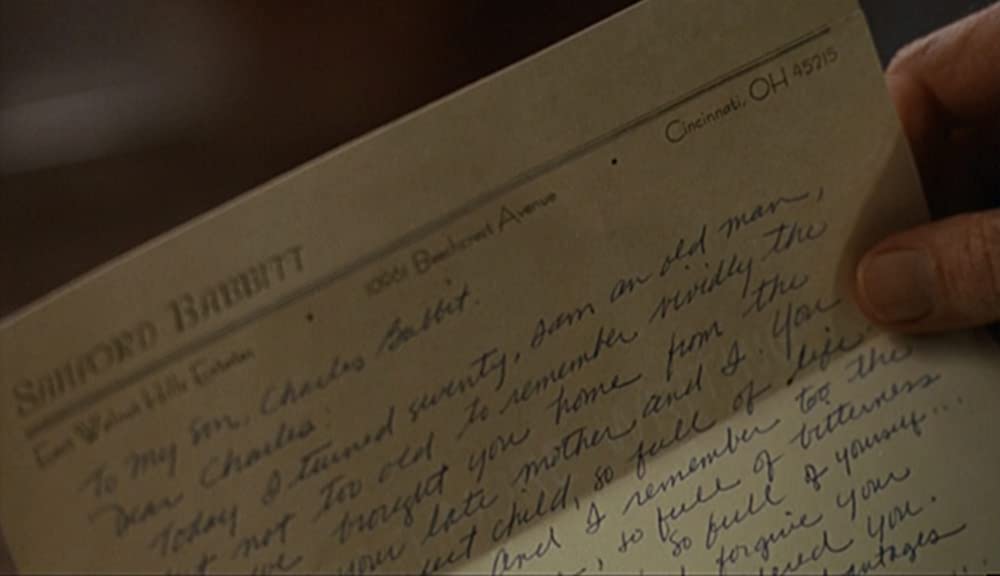 SANFORD BABBITT
East Walnut Hills Estates
10961 Beechcrest Avenue
Cincinnati, OH 45215
To my son, Charles Babbit.
Dear Charles:
Today I turned seventy. I am an old man,
but not too old to remember vividly the
we brought you home from the
your late mother and I. You
child, so full of life
and I remember too the
, so full of bitterness
so full of yourself...
forgive your
you.